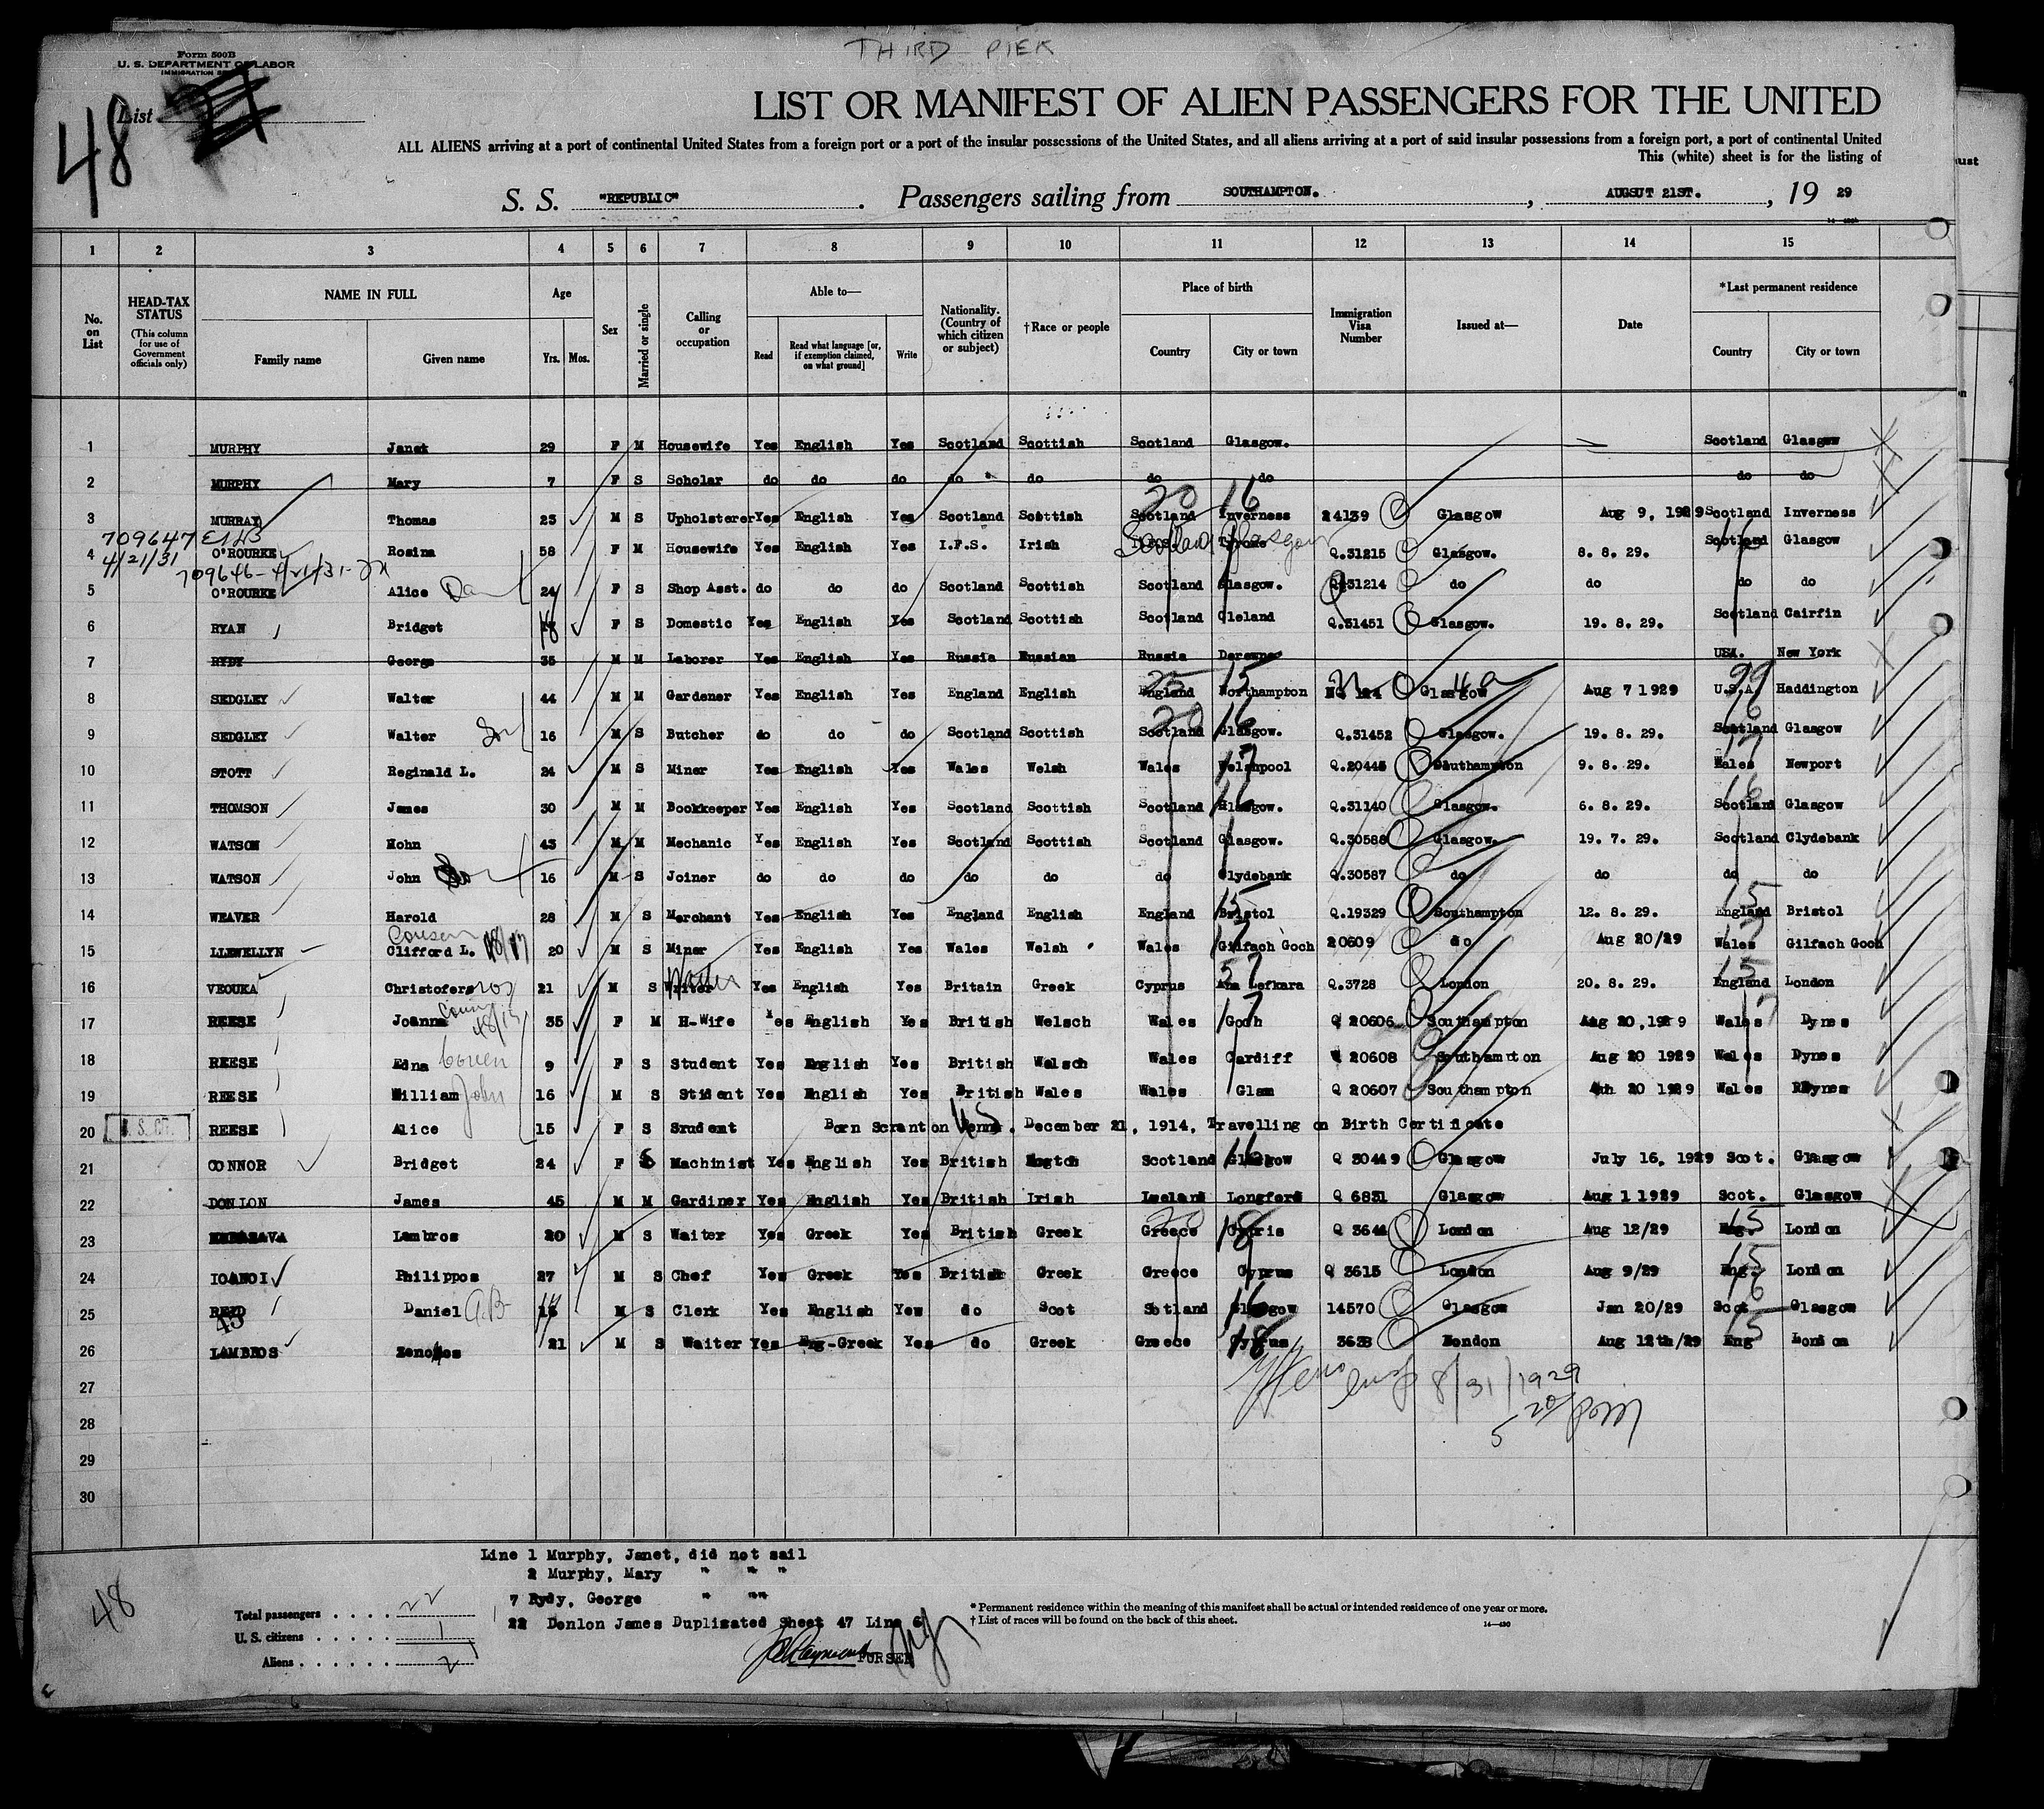 THIRD PIER
Form 500B
U. S. DEPARTMENT OF LABOR
IMMIGRATION
List
48
LIST OR MANIFEST OF ALIEN PASSENGERS FOR THE UNITED
ALL ALIENS arriving at a port of continental United States from a foreign port or a port of the insular possessions of the United States, and all aliens arriving at a port of said insular possessions from a foreign port, a port of continental United
This (white) sheet is for the listing of
S. S. "REPUBLIC" . Passengers sailing from SOUTHAMPTON. , AUGSUT 21ST. , 19 29
1 2 3 4 5 6 7 8 9 10 11 12 13 14 15
No. on List HEAD-TAX STATUS (This column for use of Government officials only) NAME IN FULL Family name Given name Age Yrs. Mos. Sex Married or single Calling or occupation Able to— Read Read what language [or, if exemption claimed, on what ground] Write Nationality. (Country of which citizen or subject) †Race or people Place of birth Country City or town Immigration Visa Number Issued at— Date *Last permanent residence Country City or town
1 MURPHY Janet 29 F M Housewife Yes English Yes Scotland Scottish Scotland Glasgow. Scotland Glasgow
2 MURPHY Mary 7 F S Scholar do do do do do do do do do
20 16
3 MURRAY Thomas 23 M S Upholsterer Yes English Yes Scotland Scottish Scotland Inverness 24139 Glasgow Aug 9, 1929 Scotland Inverness
709647 4/21/31
4 O'ROURKE Rosina 58 F M Housewife Yes English Yes I.F.S. Irish Scotland Glasgow Tyrone Q.31215 Glasgow. 8. 8. 29. Scotland Glasgow
709646-4/21/31
5 O'ROURKE Alice Da 24 F S Shop Asst. do do do Scotland Scottish Scotland Glasgow. Q.31214 do do do do
6 RYAN Bridget 18 F S Domestic Yes English Yes Scotland Scottish Scotland Cleland Q.31451 Glasgow. 19. 8. 29. Scotland Cairfin
7 RYDY George 35 M M Laborer Yes English Yes Russia Russian Russia USA. New York
8 SEDGLEY Walter 44 M M Gardener Yes English Yes England English England Northampton Glasgow Aug 7 1929 U.S.A. Haddington
9 SEDGLEY Walter Son 16 M S Butcher do do do Scotland Scottish Scotland Glasgow. Q.31452 Glasgow. 19. 8. 29. Scotland Glasgow
10 STOTT Reginald L. 24 M S Miner Yes English Yes Wales Welsh Wales Welshpool Q.20445 Southampton 9. 8. 29. Wales Newport
11 THOMSON James 30 M M Bookkeeper Yes English Yes Scotland Scottish Scotland Glasgow. Q.31140 Glasgow. 6. 8. 29. Scotland Glasgow
12 WATSON Hohn 43 M M Mechanic Yes English Yes Scotland Scottish Scotland Glasgow. Q.30588 Glasgow. 19. 7. 29. Scotland Clydebank
13 WATSON John Son 16 M S Joiner do do do do do do Clydebank Q.30587 do do do do
14 WEAVER Harold 28 M S Merchant Yes English Yes England English England Bristol Q.19329 Southampton 12. 8. 29. England Bristol
15 LLEWELLYN Clifford L. Cousin 48/17 20 M S Miner Yes English Yes Wales Welsh Wales Gilfach Goch 20609 do Aug 20/29 Wales Gilfach Goch
16 VROUKA Christoferos 21 M S Writer Waiter Yes English Yes Britain Greek Cyprus Ana Lefkara Q.3728 London 20. 8. 29. England London
17 REESE Joanna Cousin 48/15 35 F M H-Wife Yes English Yes British Welsch Wales Goch Q 20606 Southampton Aug 20,1929 Wales Dynes
18 REESE Edna 9 F S Student Yes English Yes British Welsch Wales Cardiff 20608 Southamton Aug 20 1929 Wales Dynes
19 REESE William John 16 M S Stident Yes English Yes British Wales Wales Glam Q 20607 Southampton 20 1929 Wales
20 REESE Alice 15 F S Srudent Born Scranton Penna. December 21, 1914, Travelling on Birth Certificate
21 CONNOR Bridget 24 F S Machinist Yes English Yes British Scotland Glasgow Q 30449 Glasgow July 16, 1929 Scot. Glasgow
22 DONLON James 45 M M Gardiner Yes English Yes British Irish Longford Q 6831 Glasgow Aug 1 1929 Scot. Glasgow
23 Lambros 20 M S Waiter Yes Greek Yes British Greek Greece Cypris Q 3644 London Aug 12/29 Eng. London
24 IOANOI Philippos 27 M S Chef Yes Greek Yes British Greek Greece Cyprus Q 3615 London Aug 9/29 Eng. London
25 REID Daniel A.B. M S Clerk Yes English Yes do Scot Sotland Glasgow 14570 Glasgow Jan 20/29 Scot Glasgow
26 LAMBROS 21 M S Waiter Yes Eng-Greek Yes do Greek Greece Cyprus 3638 Aug 12th/29 Eng London
27
8/31/1929
28
29
30
Line 1 Murphy, Janet, did not sail
2 Murphy, Mary " " "
7 Rydy, George " ""
22 Donlon James Duplicated Sheet 47 Line 6
PURSER
48
Total passengers . . . . 22
U. S. citizens . . . . . 1
Aliens . . . . . . 21
*Permanent residence within the meaning of this manifest shall be actual or intended residence of one year or more.
†List of races will be found on the back of this sheet.